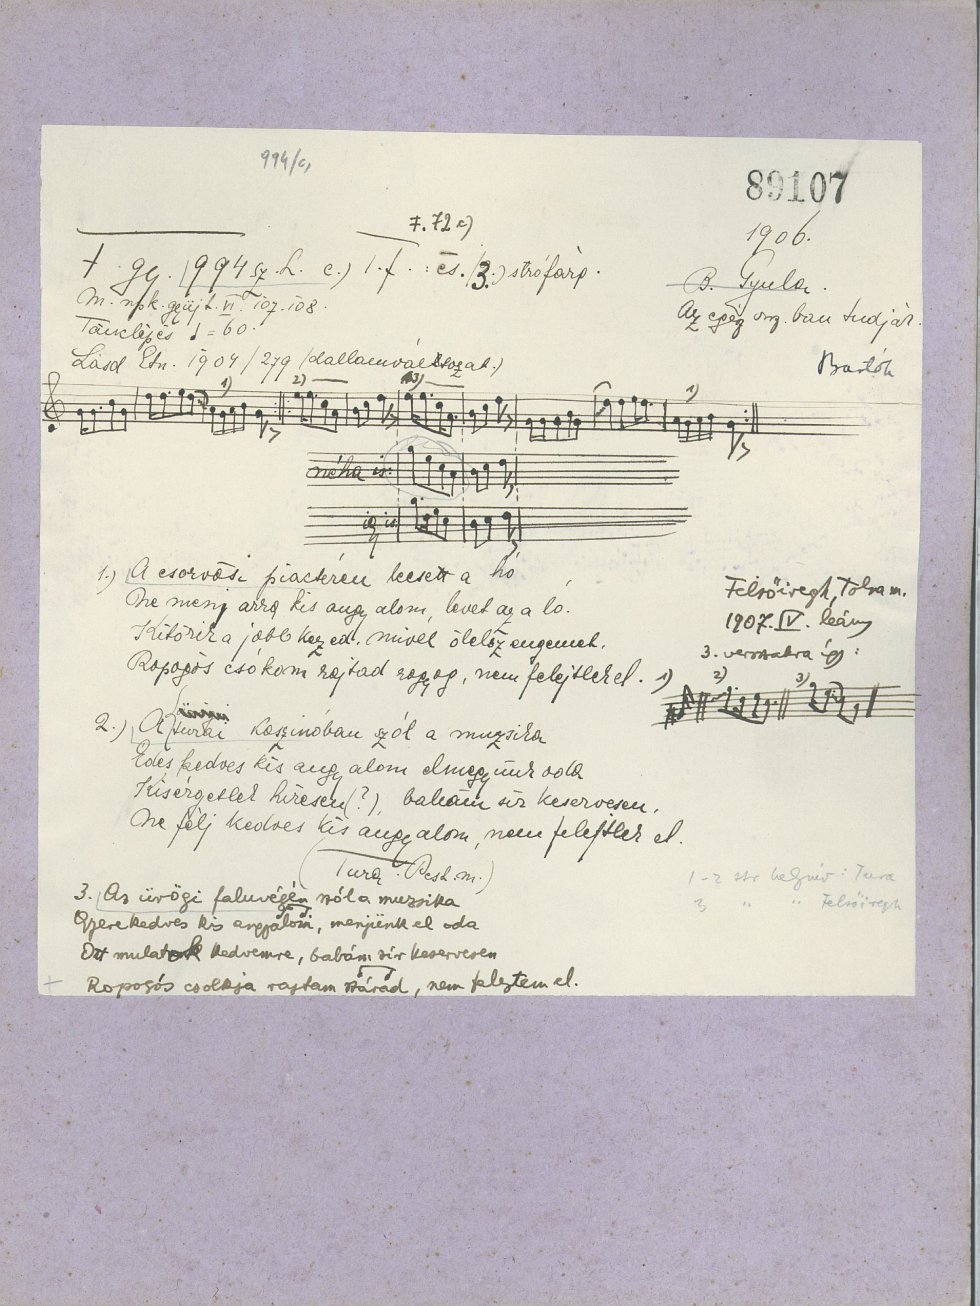 994/c,
89107
F. 72 c)
1906.
† gy. 994 sz. h. c.) T. f. : és. (3.) strófára.
B. Gyula.
M. npk. gyűjt. VI. 107-108.
Az egész orsz.ban tudják.
Tánclépés ♩ = 60.
Bartók
Lásd Etn. 1904/279 (dallamváltozat.)
1) 2) 3) 1)
néha is:
így is
1.) A csorvási piactéren leesett a hó
Ne menj arra kis angyalom, levet az a ló.
Kitörik a jobb kezed, mivel ölelsz engemet.
Ropogós csókom rajtad ragyog, nem felejtlek el.
Felsőiregh, Tolna m.
1907. IV. leány
3. versszakra így:
1) 2) 3)
2.) A turai kaszinóban szól a muzsika
Édes kedves kis angyalom elmegyünk oda
Kisérgetlek híresen(?), babám sír keservesen,
Ne félj kedves kis angyalom, nem felejtlek el.
(Tura. Pest. m.)
1-2 str helynév: Tura
3 " " Felsőiregh
3. Az ürögi faluvégén szól a muzsika
Gyere kedves kis angyalom, menjünk el oda
Ott mulatok kedvemre, babám sír keservesen
Ropogós csókja rajtam szárad, nem felejtem el.